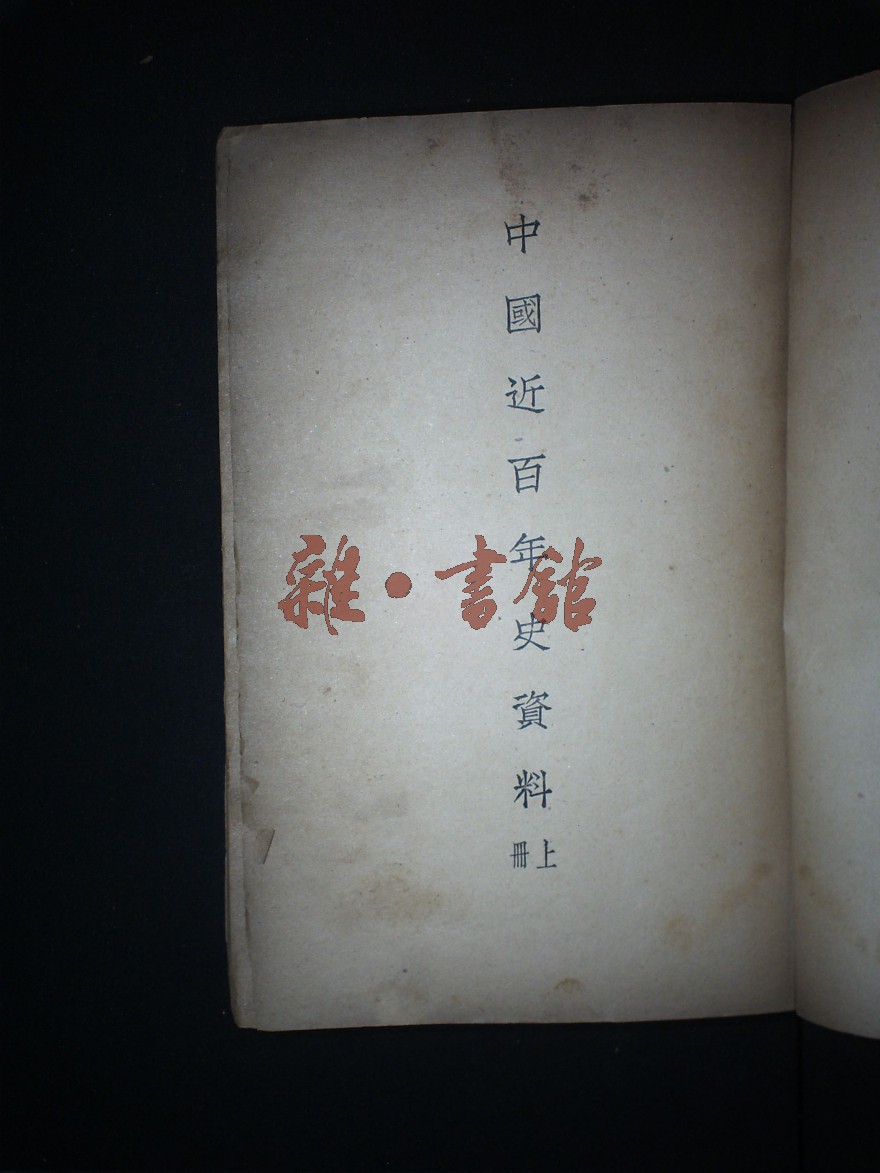 中國近百年史資料
上冊
雜·書館